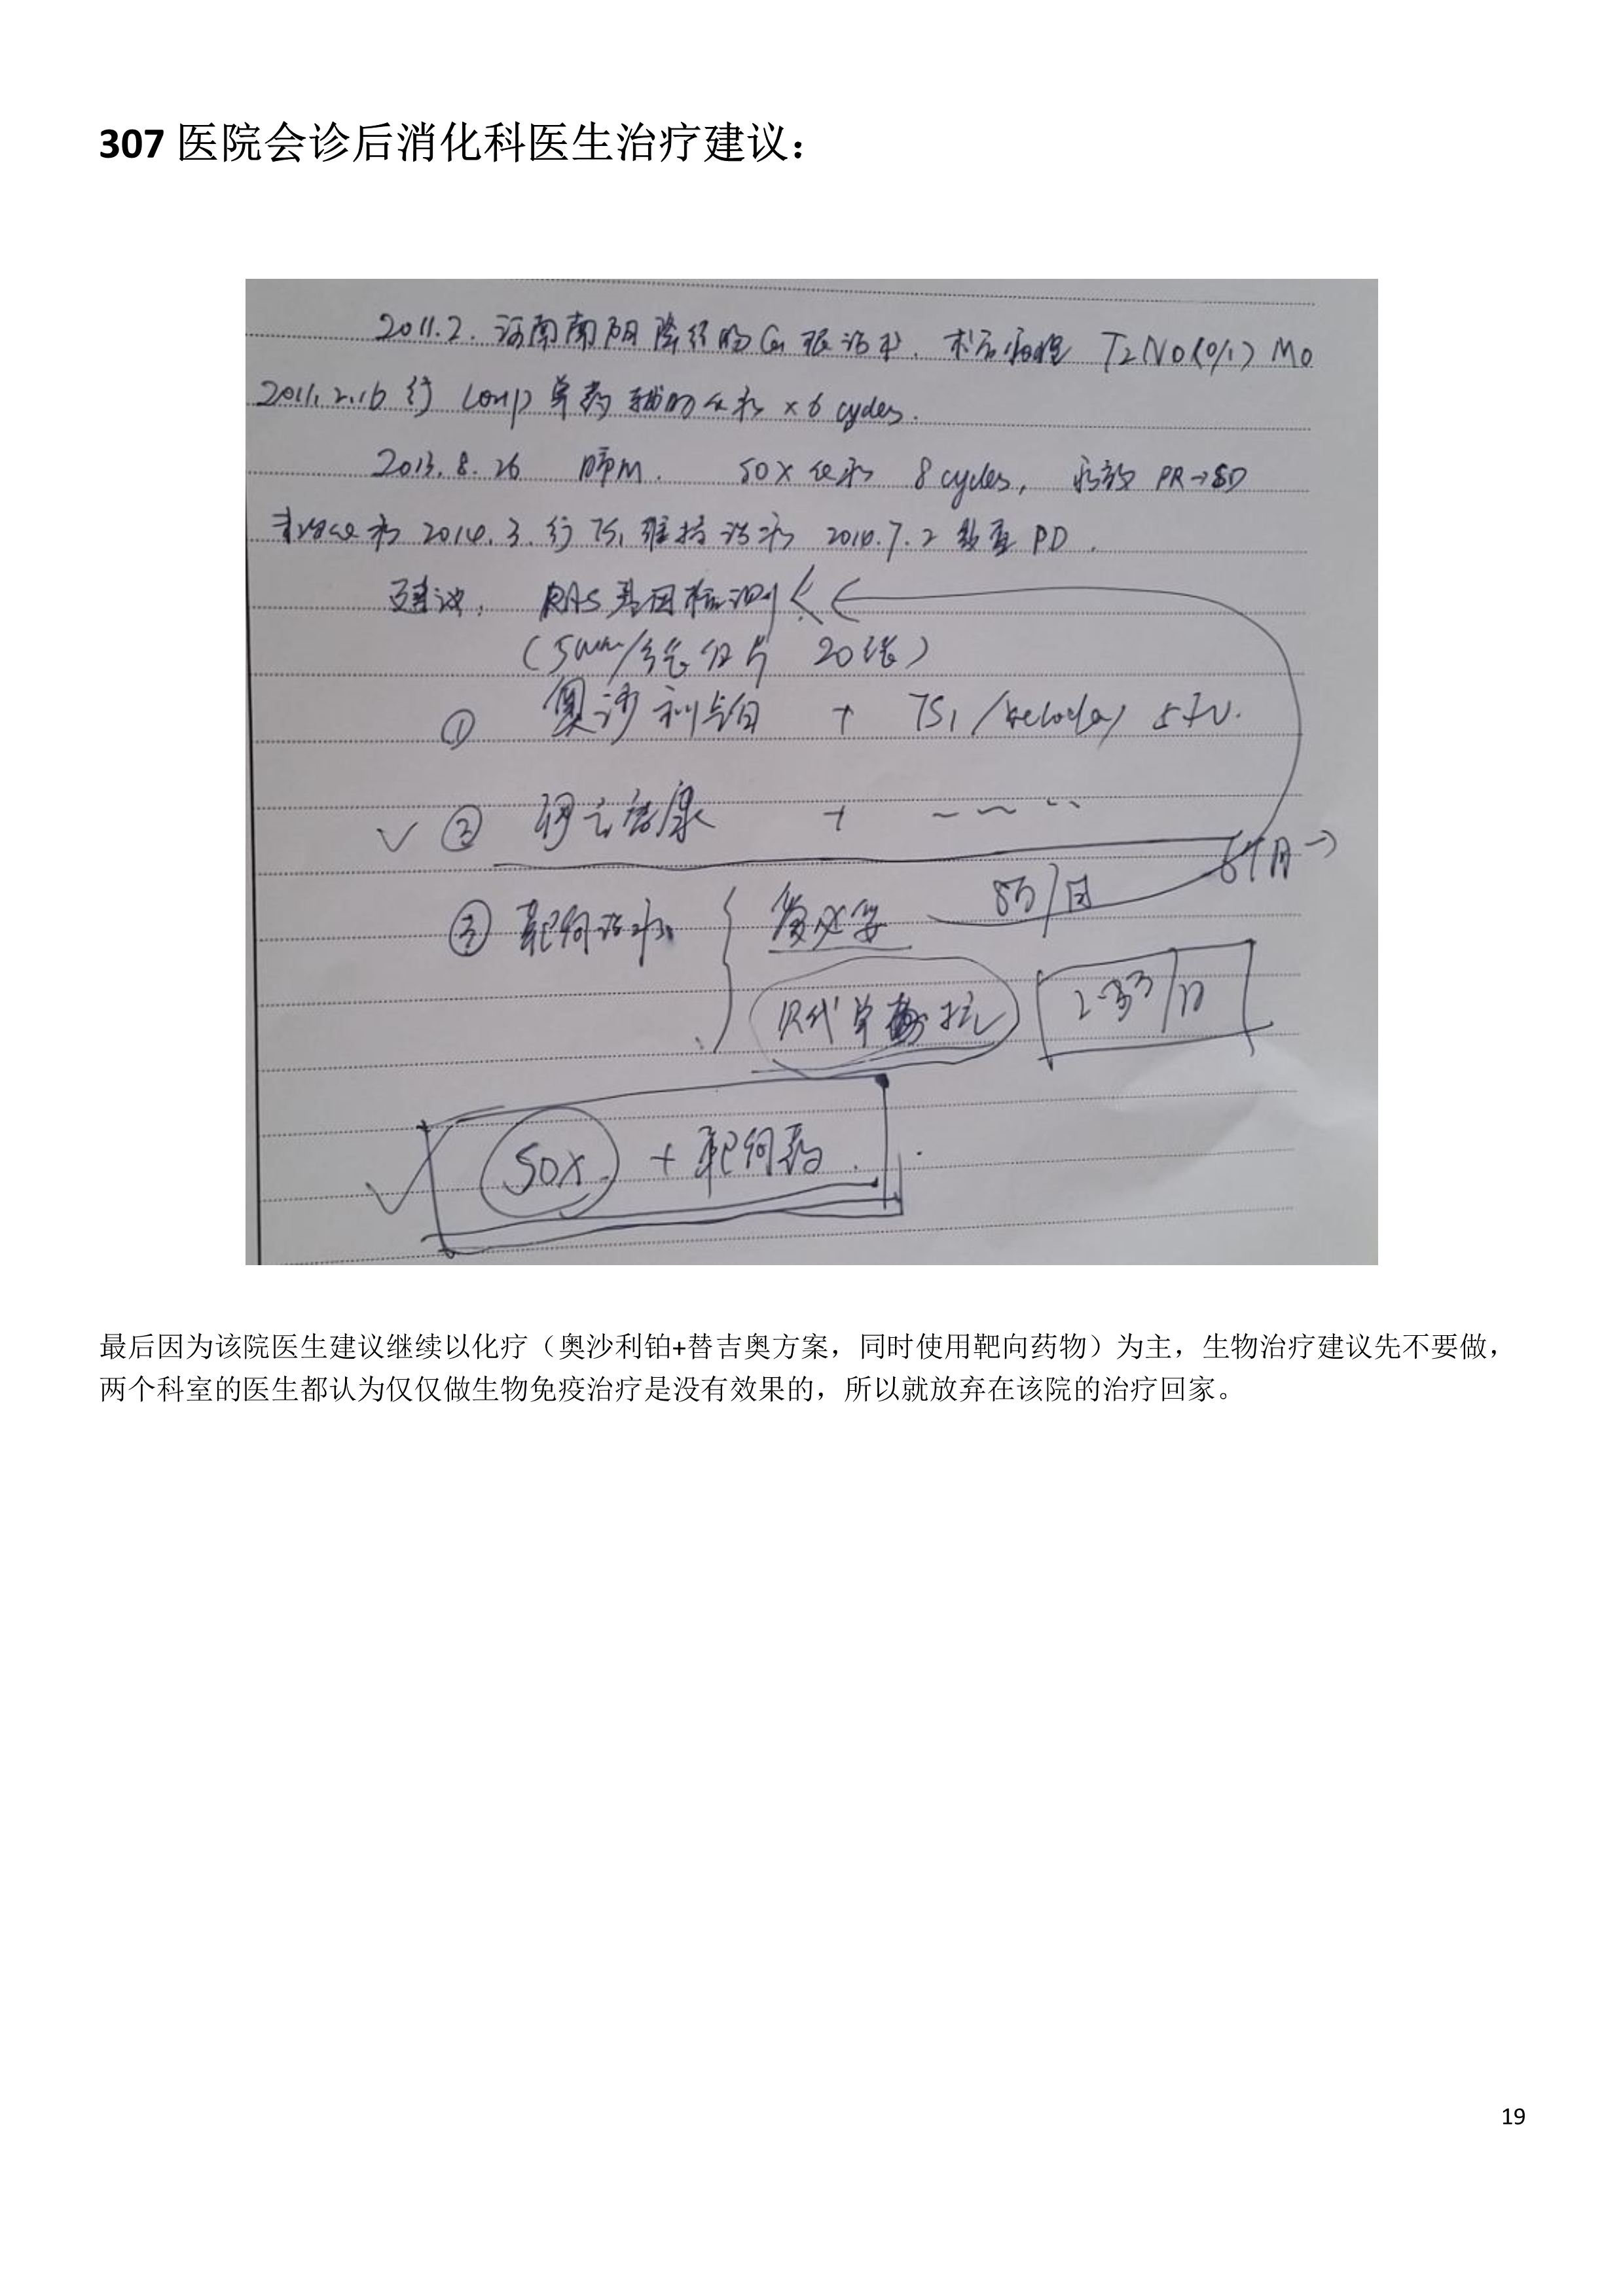 307 医院会诊后消化科医生治疗建议：
2011.2. 河南南阳降结肠Ca根治术. 术后病理 T2N0(0/1) M0
2011.2.16 行 单药辅助化疗 x 6 cycles.
2013.8.26 肺M. SOX化疗 8 cycles, 疗效 PR→SD
2014.3. 行 TS1 维持治疗 2014.7.2 复查 PD.
建议: RAS基因检测
(5um/张 切片 20张)
① 奥沙利铂 + TS1 / Xeloda / 5Fu.
✓ ② 伊立替康 +
6个月→
③ 靶向治疗 爱必妥 8万/月
贝伐单抗 2-3万/月
✓ SOX + 靶向药.
最后因为该院医生建议继续以化疗（奥沙利铂+替吉奥方案，同时使用靶向药物）为主，生物治疗建议先不要做，
两个科室的医生都认为仅仅做生物免疫治疗是没有效果的，所以就放弃在该院的治疗回家。
19